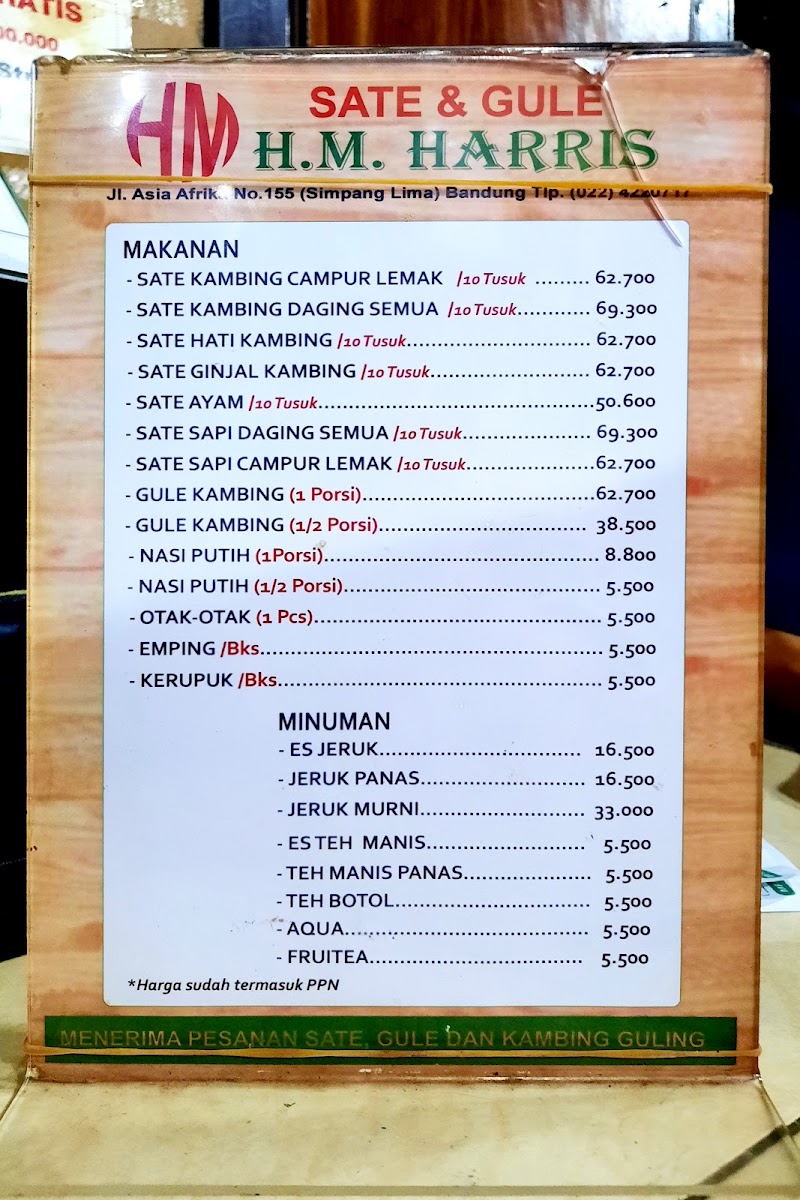 RATIS
00.000
HM
SATE & GULE
H.M. HARRIS
Jl. Asia Afrika No.155 (Simpang Lima) Bandung Tlp. (022) 4220717
MAKANAN
- SATE KAMBING CAMPUR LEMAK /10 Tusuk ......... 62.700
- SATE KAMBING DAGING SEMUA /10 Tusuk............ 69.300
- SATE HATI KAMBING /10 Tusuk.............................. 62.700
- SATE GINJAL KAMBING /10 Tusuk.......................... 62.700
- SATE AYAM /10 Tusuk.............................................50.600
- SATE SAPI DAGING SEMUA /10 Tusuk..................... 69.300
- SATE SAPI CAMPUR LEMAK /10 Tusuk.....................62.700
- GULE KAMBING (1 Porsi)......................................62.700
- GULE KAMBING (1/2 Porsi).................................. 38.500
- NASI PUTIH (1Porsi)............................................. 8.800
- NASI PUTIH (1/2 Porsi).......................................... 5.500
- OTAK-OTAK (1 Pcs)............................................... 5.500
- EMPING /Bks........................................................ 5.500
- KERUPUK /Bks..................................................... 5.500
MINUMAN
- ES JERUK................................. 16.500
- JERUK PANAS........................... 16.500
- JERUK MURNI........................... 33.000
- ES TEH MANIS.......................... 5.500
- TEH MANIS PANAS..................... 5.500
- TEH BOTOL................................ 5.500
- AQUA........................................ 5.500
- FRUITEA................................... 5.500
*Harga sudah termasuk PPN
MENERIMA PESANAN SATE, GULE DAN KAMBING GULING